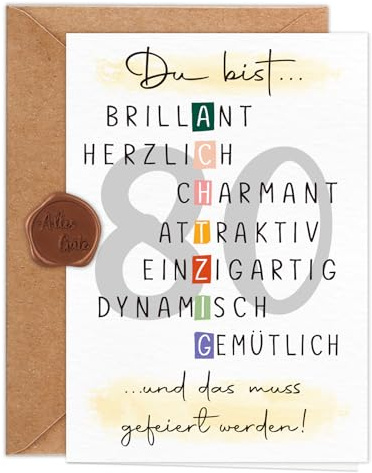 Du bist...
BRILLANT
HERZLICH
80
CHARMANT
ATTRAKTIV
EINZIGARTIG
DYNAMISCH
GEMÜTLICH
...und das muss
gefeiert werden!